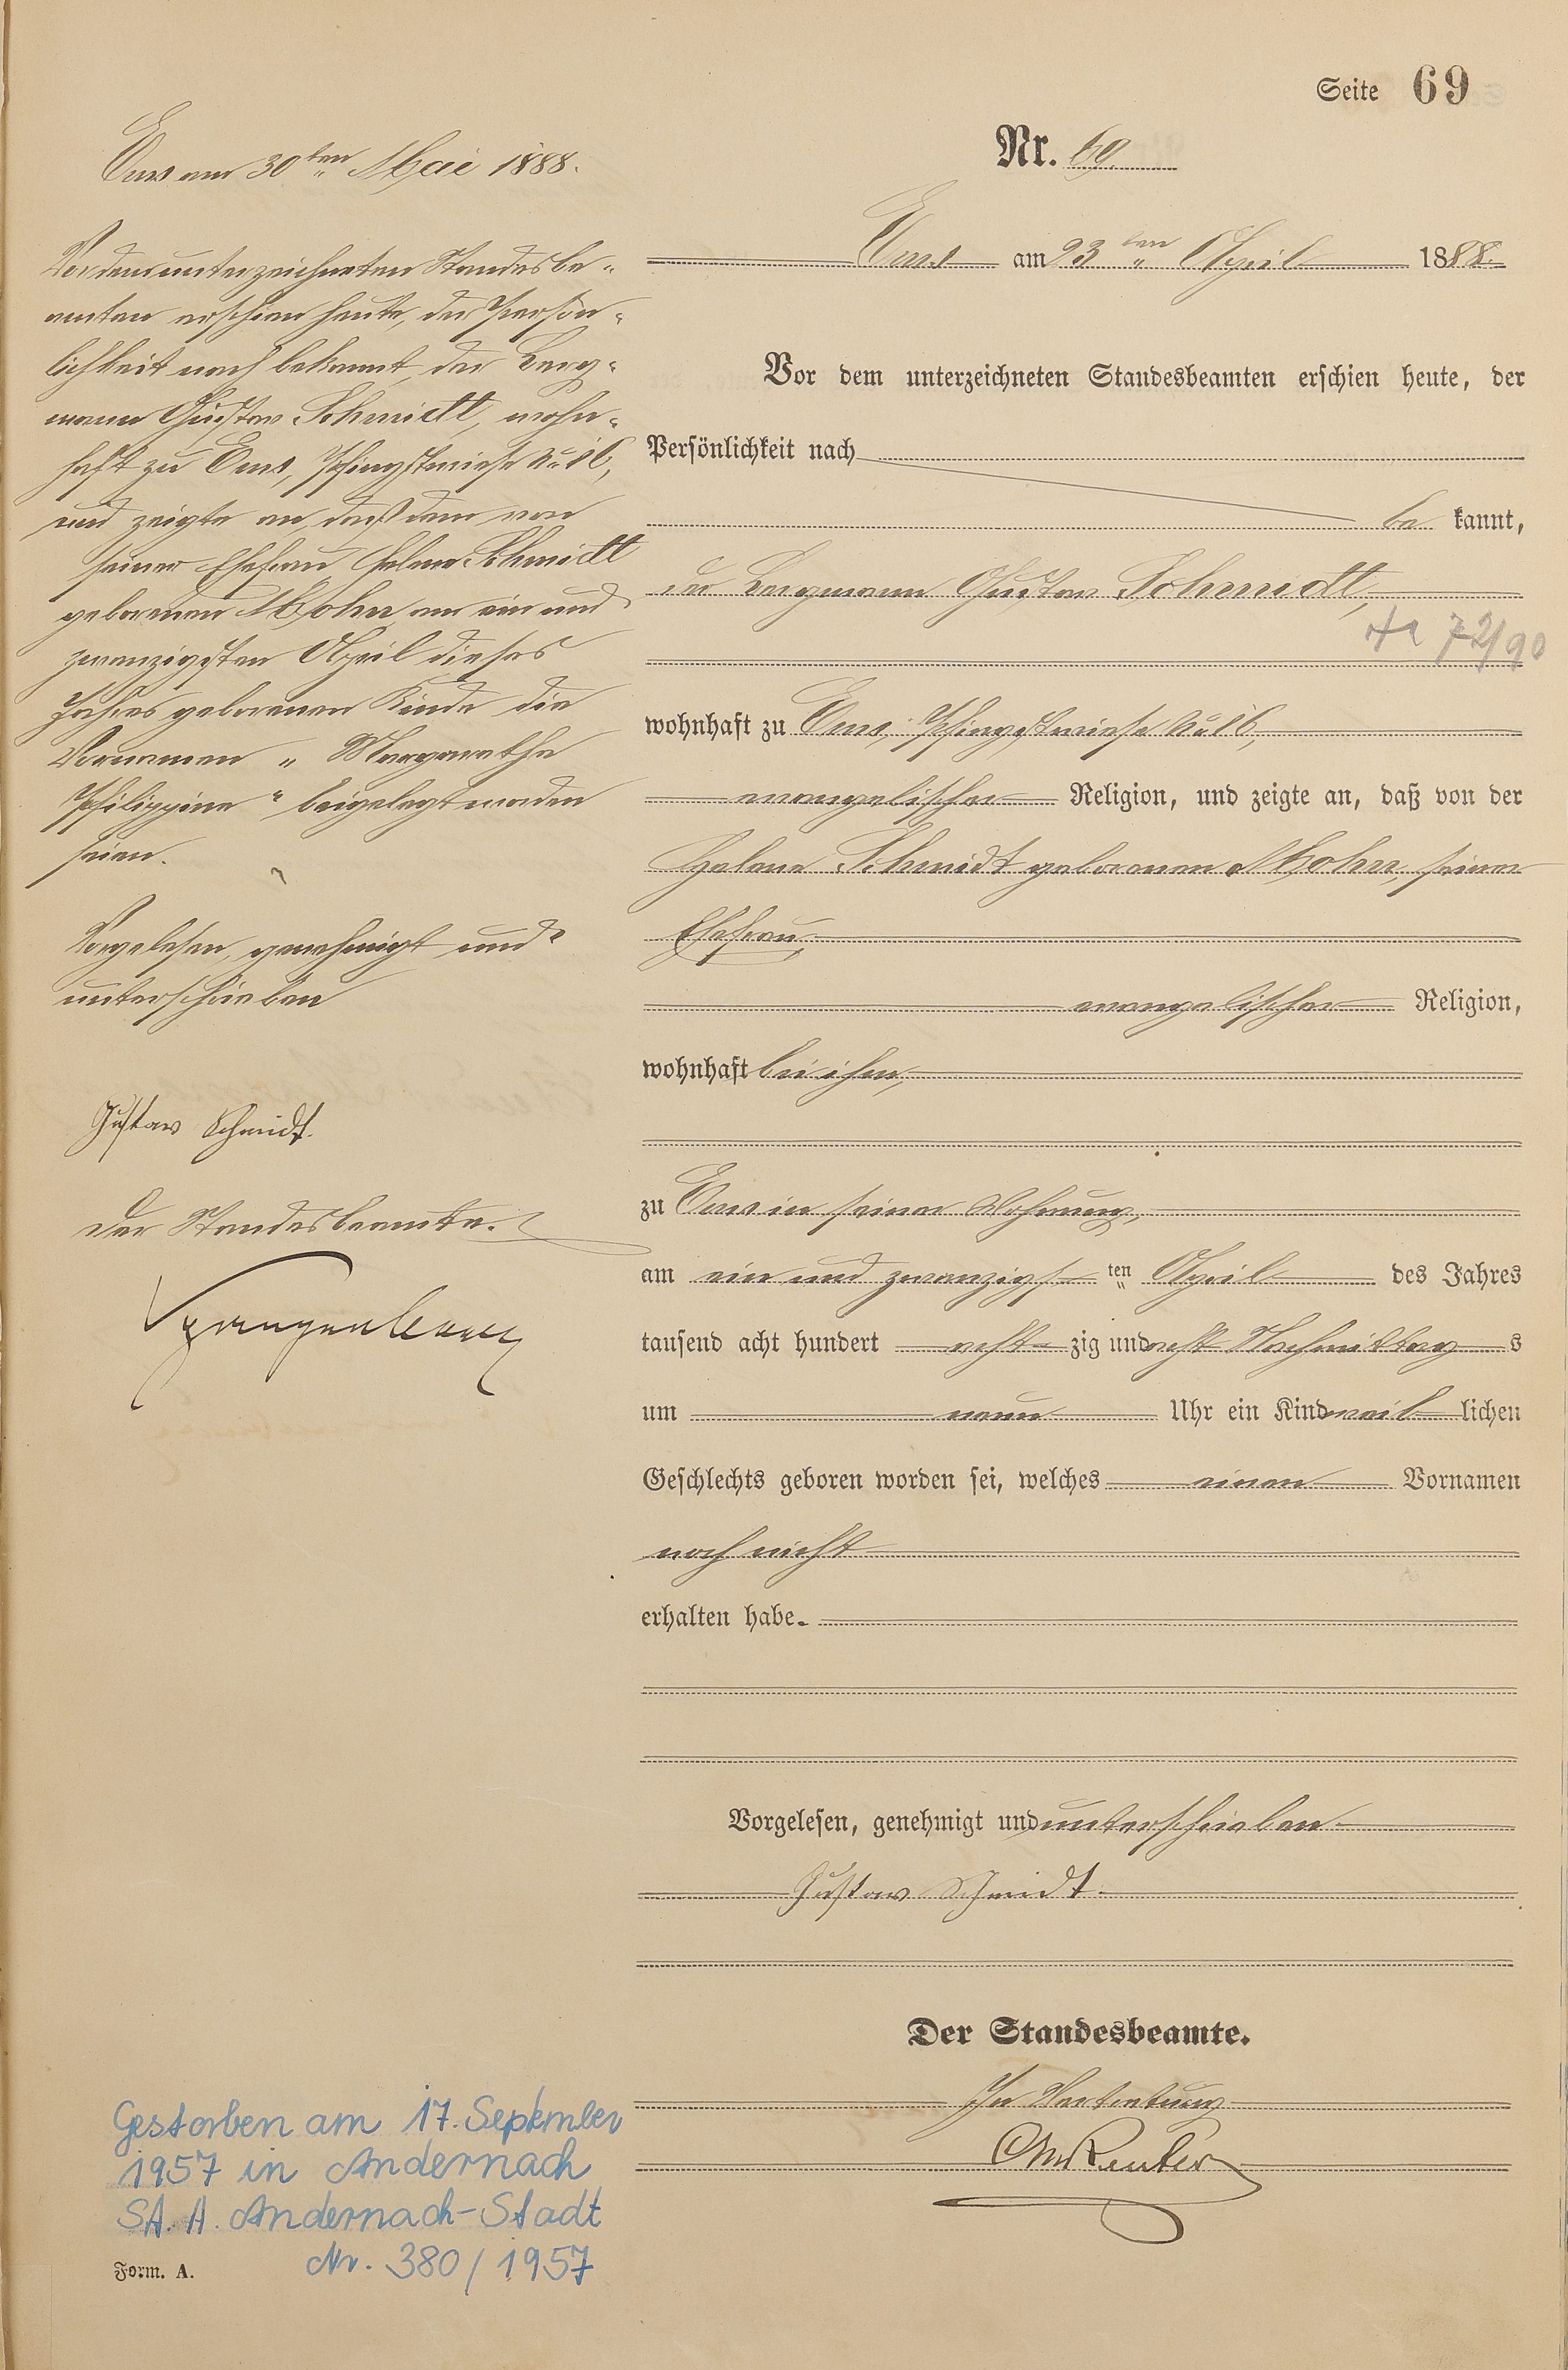 Seite 69
Nr. 69.
Ems am 23ten April 1888.
Vor dem unterzeichneten Standesbeamten erschien heute, der
Persönlichkeit nach
be kannt,
der Bergmann Gustav Schmidt,
72/90
wohnhaft zu Ems, Pfingstwiese No 16,
evangelischer Religion, und zeigte an, daß von der
Helene Schmidt geborenen Mohr, seiner
Ehefrau,
evangelischer Religion,
wohnhaft bei ihm,
zu Ems in seiner Wohnung,
am ein und zwanzigs ten April des Jahres
tausend acht hundert acht zig und acht Nachmittag s
um neun Uhr ein Kind weib lichen
Geschlechts geboren worden sei, welches einen Vornamen
noch nicht
erhalten habe.
Vorgelesen, genehmigt und unterschrieben
Gustav Schmidt.
Der Standesbeamte.
In Vertretung
Reuter
Ems am 30ten Mai 1888.
Vor dem unterzeichneten Standesbe-
amten erschien heute, der Persön-
lichkeit nach bekannt, der Berg-
mann Gustav Schmidt, wohn-
haft zu Ems, Pfingstwiese No 16,
und zeigte an, daß dem von
seiner Ehefrau Helene Schmidt
geborenen Mohr am ein und
zwanzigsten April dieses
Jahres geborenen Kinde die
Vornamen „Margarethe
Philippine" beigelegt worden
seien.
Vorgelesen, genehmigt und
unterschrieben
Gustav Schmidt.
Der Standesbeamte.
Spangenberg
Gestorben am 17. September
1957 in Andernach
St. A. Andernach-Stadt
Nr. 380/1957
Form. A.